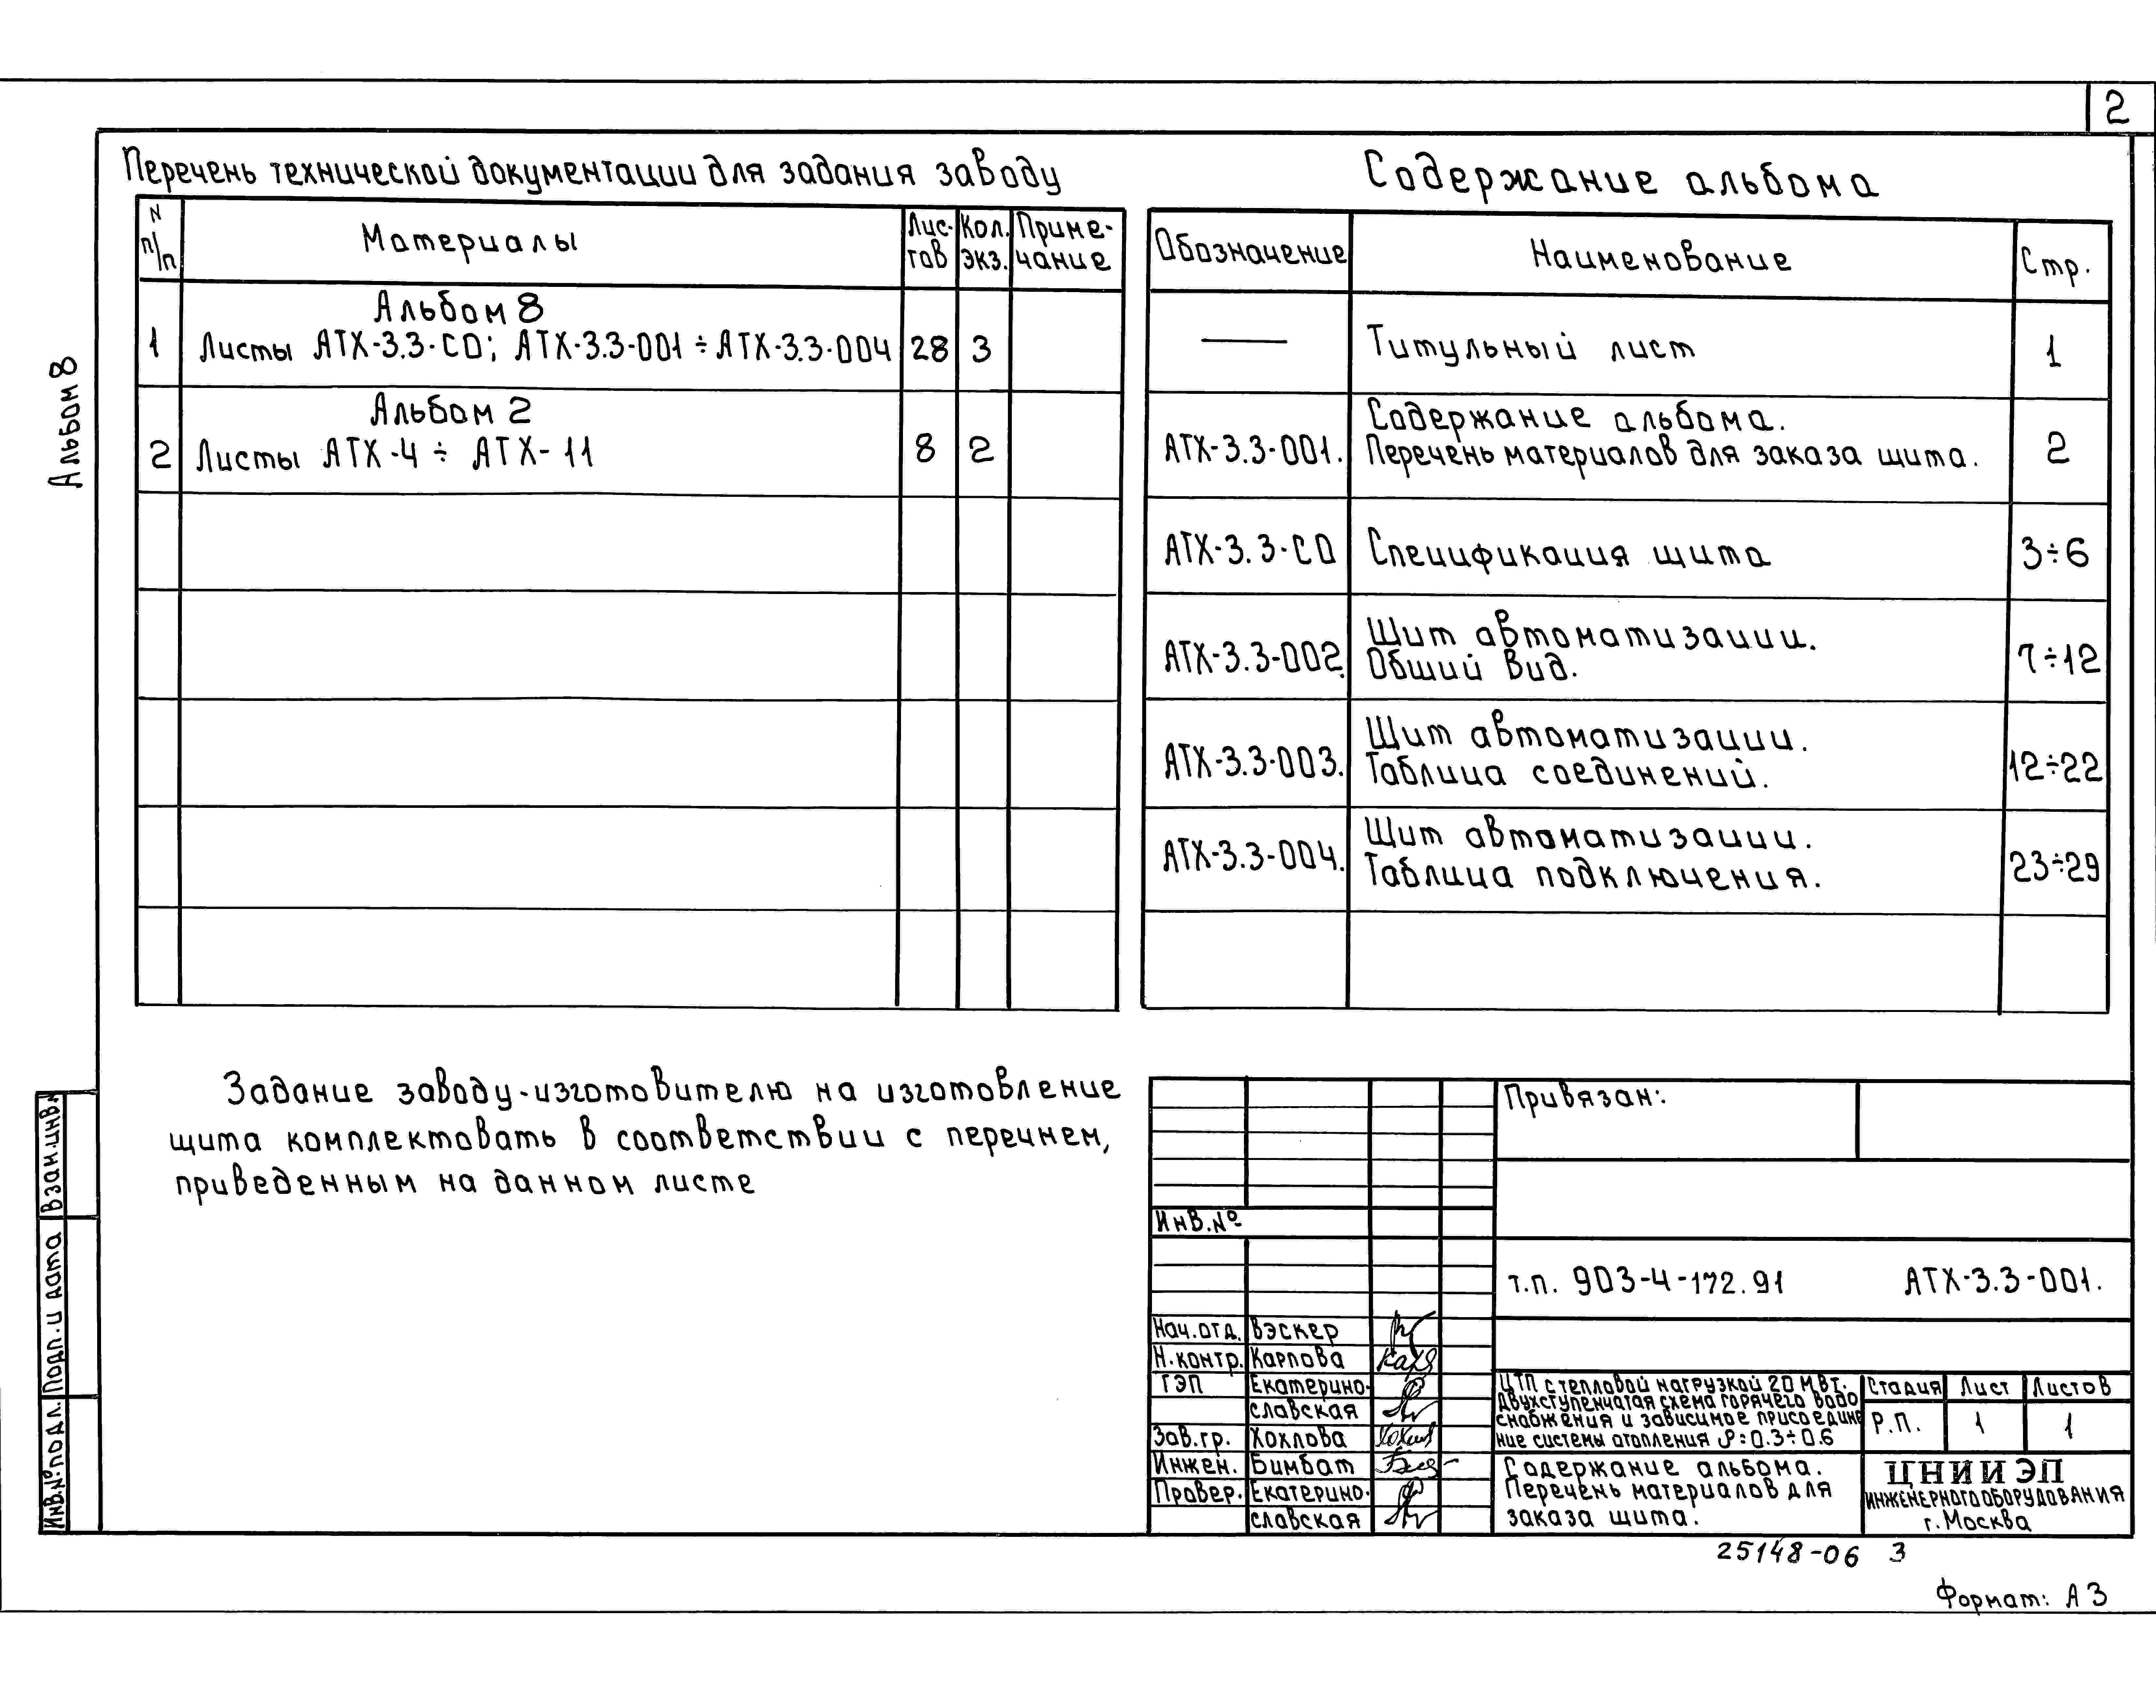 2
Альбом 8
Перечень технической документации для задания заводу
N п/п
Материалы
Лис-
тов
Кол.
экз.
Приме-
чание
Альбом 8
1 Листы АТХ-3.3-СО; АТХ-3.3-001 ÷ АТХ-3.3-004 28 3
Альбом 2
2 Листы АТХ-4 ÷ АТХ-11 8 2
Содержание альбома
Обозначение Наименование Стр.
— Титульный лист 1
Содержание альбома.
АТХ-3.3-001. Перечень материалов для заказа щита. 2
АТХ-3.3-СО Спецификация щита 3÷6
Щит автоматизации.
АТХ-3.3-002. Общий вид. 7÷12
Щит автоматизации.
АТХ-3.3-003. Таблица соединений. 12÷22
Щит автоматизации.
АТХ-3.3-004. Таблица подключения. 23÷29
Задание заводу-изготовителю на изготовление
щита комплектовать в соответствии с перечнем,
приведенным на данном листе
Взан.инв.
Подп. и дата
Инв.№ подл.
Привязан:
Инв.№
т.п. 903-4-172.91 АТХ-3.3-001.
Нач.отд. Вэскер
Н.контр. Карлова
ГЭП Екатерино-
славская
Зав.гр. Хохлова
Инжен. Бимбат
Провер. Екатерино-
славская
ЦТП с тепловой нагрузкой 20 МВт.
Двухступенчатая схема горячего водо
снабжения и зависимое присоедине
ние системы отопления ρ=0.3÷0.6
Стадия Лист Листов
Р.П. 1 1
Содержание альбома.
Перечень материалов для
заказа щита.
ЦНИИЭП
ИНЖЕНЕРНОГО ОБОРУДОВАНИЯ
г. Москва
25148-06 3
Формат: А3